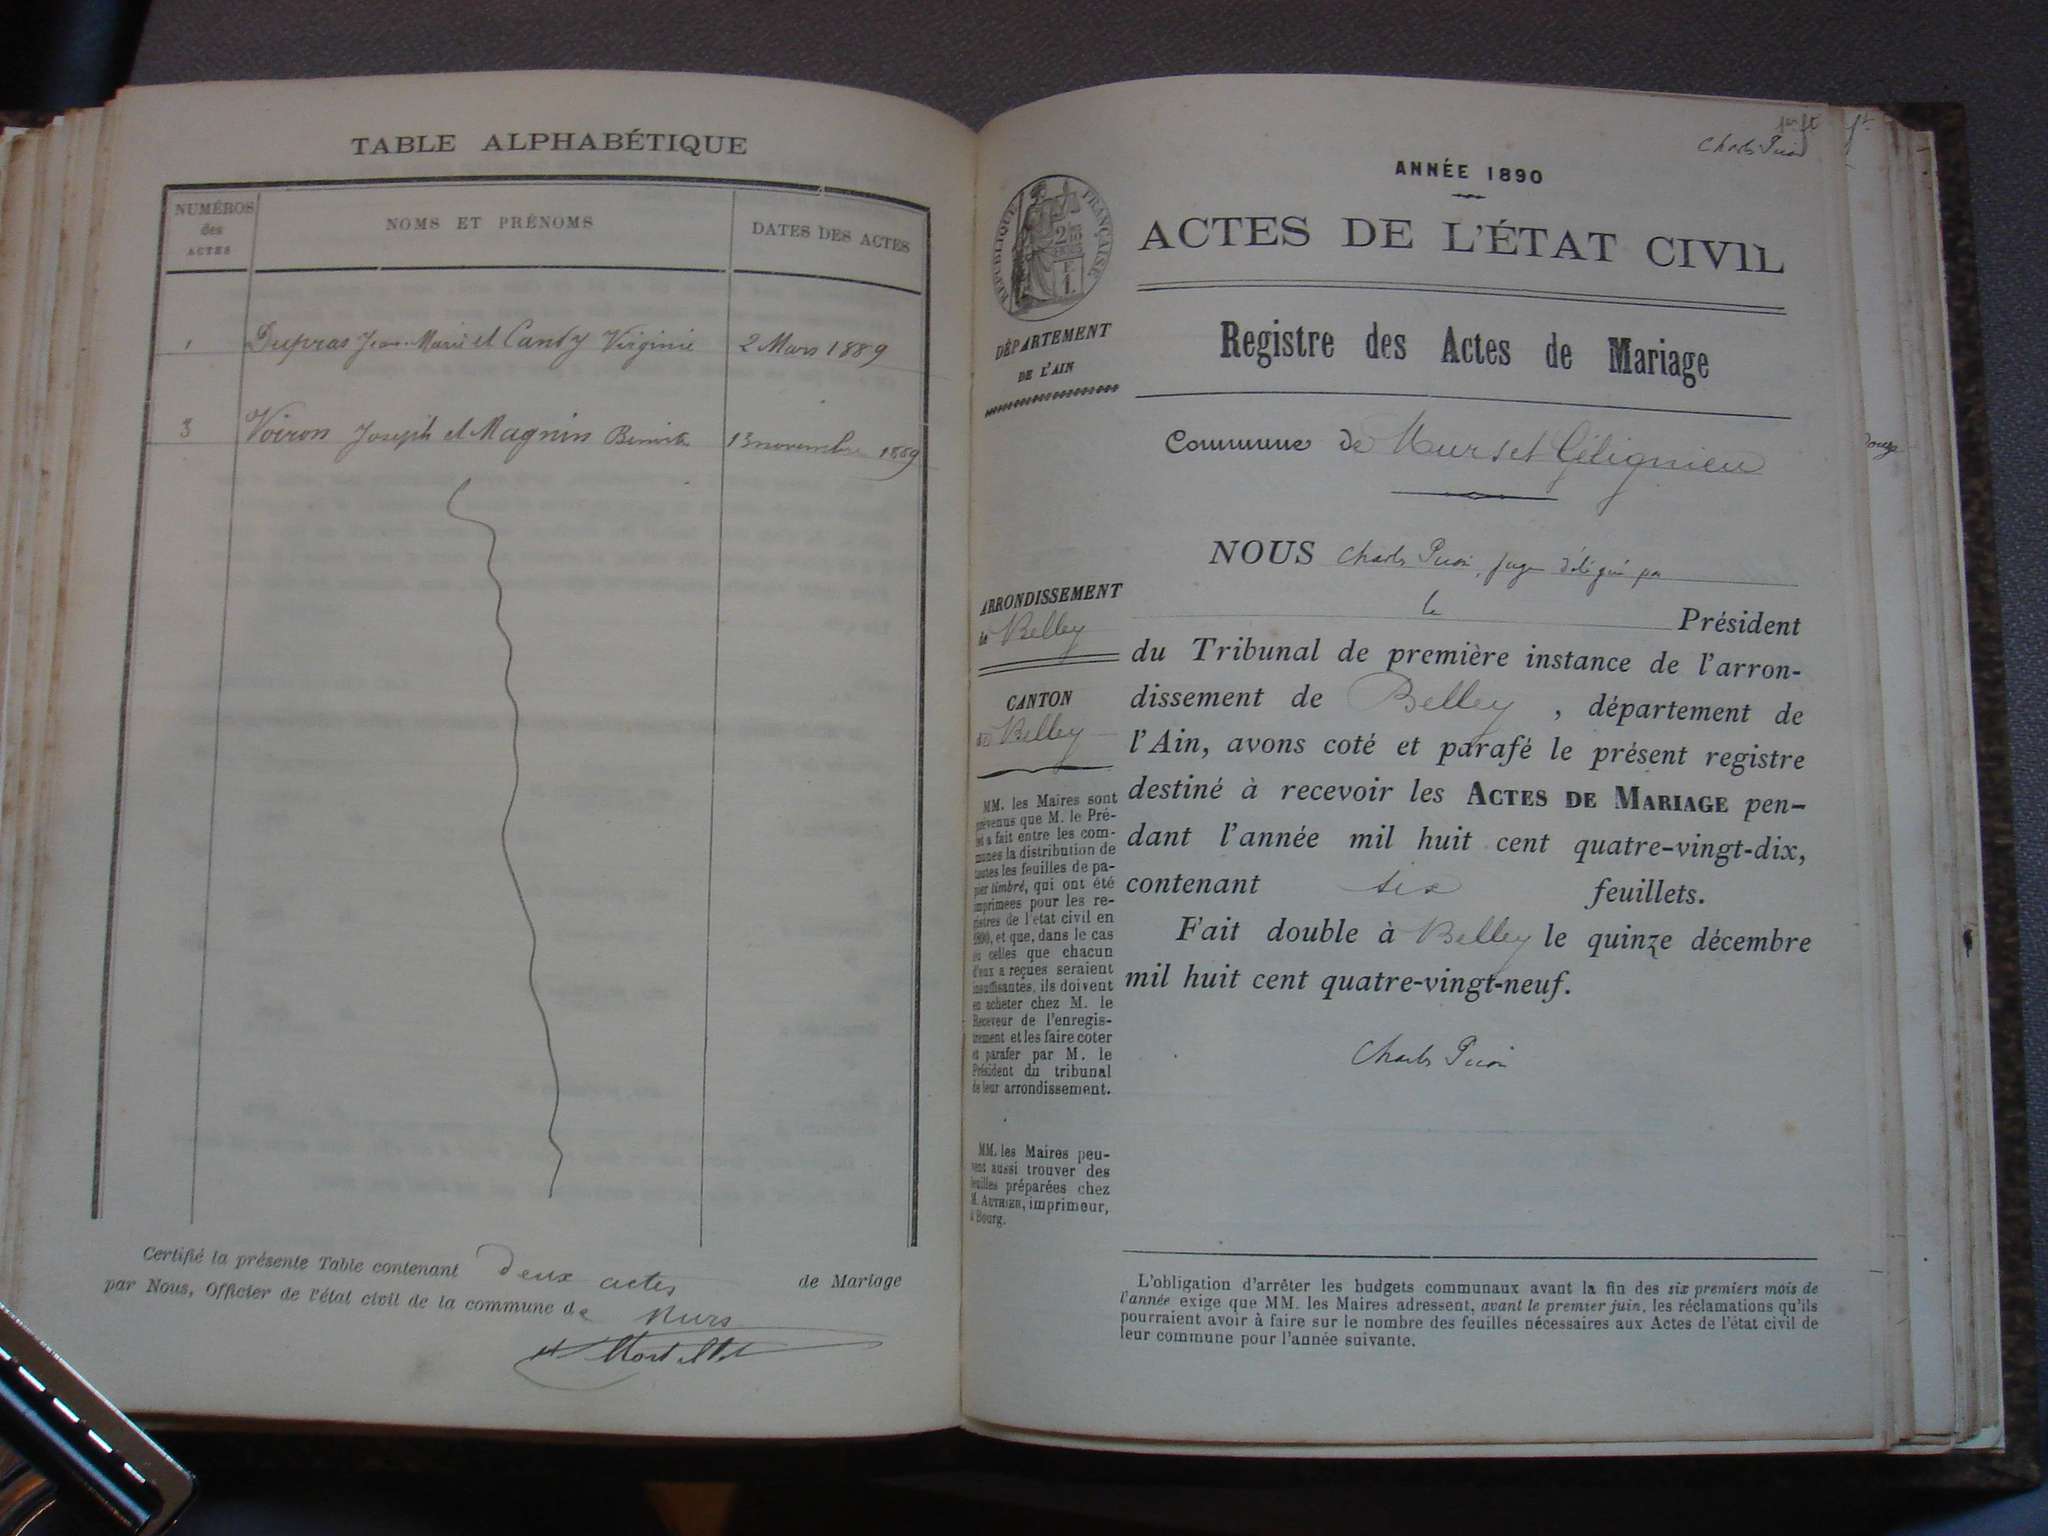 TABLE ALPHABÉTIQUE
NUMÉROS
des
ACTES
NOMS ET PRÉNOMS
DATES DES ACTES
1 Dupras Jean-Marie et Candy Virginie 2 Mars 1889
3 Voiron Joseph et Magnin Benoite 13 novembre 1889
Certifié la présente Table contenant deux actes de Mariage
par Nous, Officier de l'état civil de la commune de Murs
Charles Picon
ANNÉE 1890
RÉPUBLIQUE FRANÇAISE
ACTES DE L'ÉTAT CIVIL
DÉPARTEMENT
DE L'AIN
Registre des Actes de Mariage
Commune de Murs et Gélignieu
ARRONDISSEMENT
de Belley
CANTON
de Belley
MM. les Maires sont
prévenus que M. le Pré-
fet a fait entre les com-
munes la distribution de
toutes les feuilles de pa-
pier timbré, qui ont été
imprimées pour les re-
gistres de l'état civil en
1890, et que, dans le cas
où celles que chacun
d'eux a reçues seraient
insuffisantes, ils doivent
en acheter chez M. le
Receveur de l'enregis-
trement et les faire coter
et parafer par M. le
Président du tribunal
de leur arrondissement.
MM. les Maires peu-
vent aussi trouver des
feuilles préparées chez
M. AUTHIER, imprimeur,
à Bourg.
NOUS Charles Picon, juge délégué par
le Président
du Tribunal de première instance de l'arron-
dissement de Belley, département de
l'Ain, avons coté et parafé le présent registre
destiné à recevoir les ACTES DE MARIAGE pen-
dant l'année mil huit cent quatre-vingt-dix,
contenant six feuillets.
Fait double à Belley le quinze décembre
mil huit cent quatre-vingt-neuf.
Charles Picon
L'obligation d'arrêter les budgets communaux avant la fin des six premiers mois de
l'année exige que MM. les Maires adressent, avant le premier juin, les réclamations qu'ils
pourraient avoir à faire sur le nombre des feuilles nécessaires aux Actes de l'état civil de
leur commune pour l'année suivante.